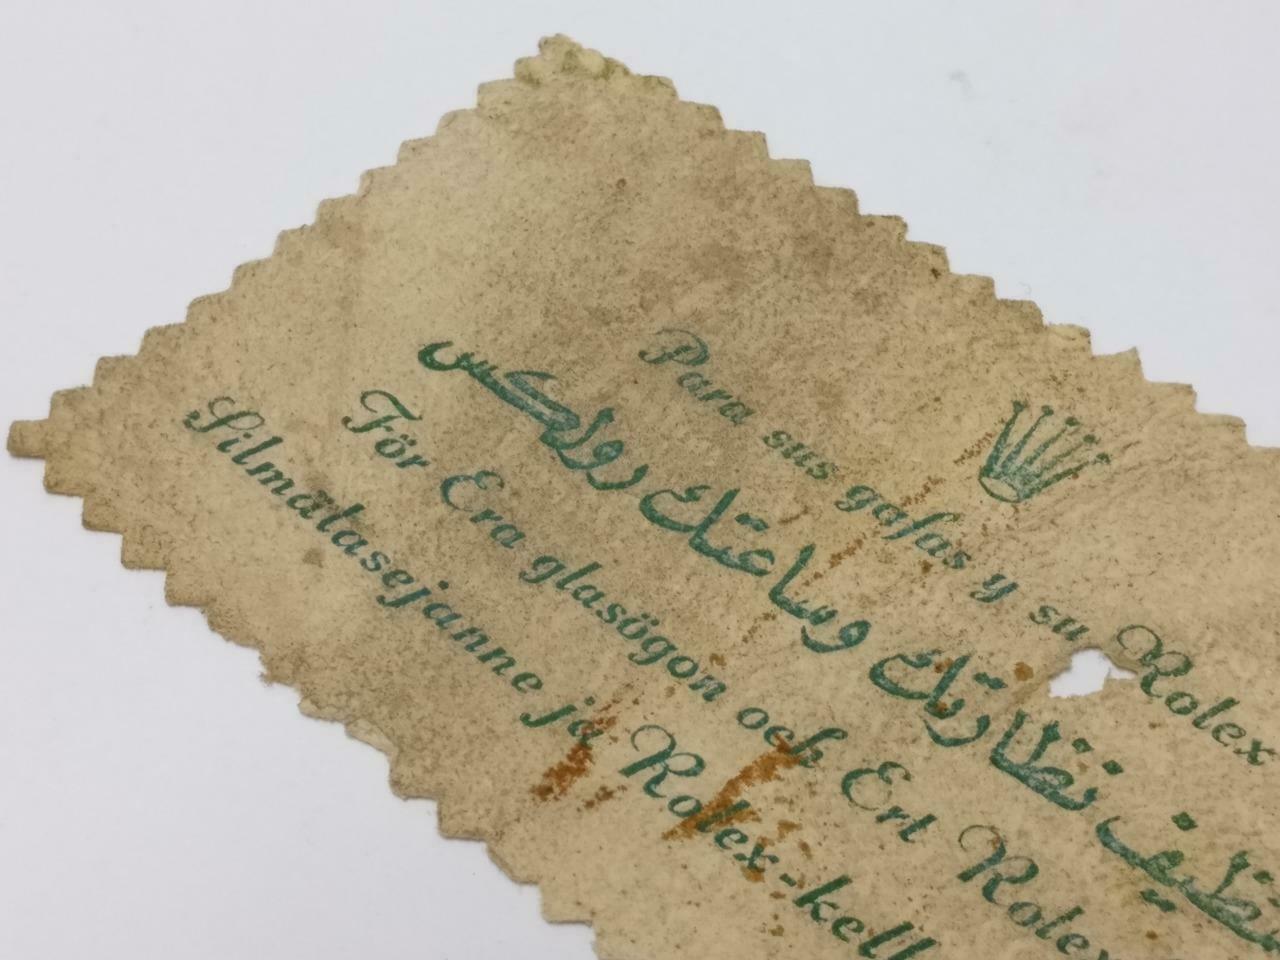 Para sus gafas y su Rolex
لتنظيف نظارتك وساعتك رولكس
För Era glasögon och Ert Rolex
Silmälasejanne ja Rolex-kell